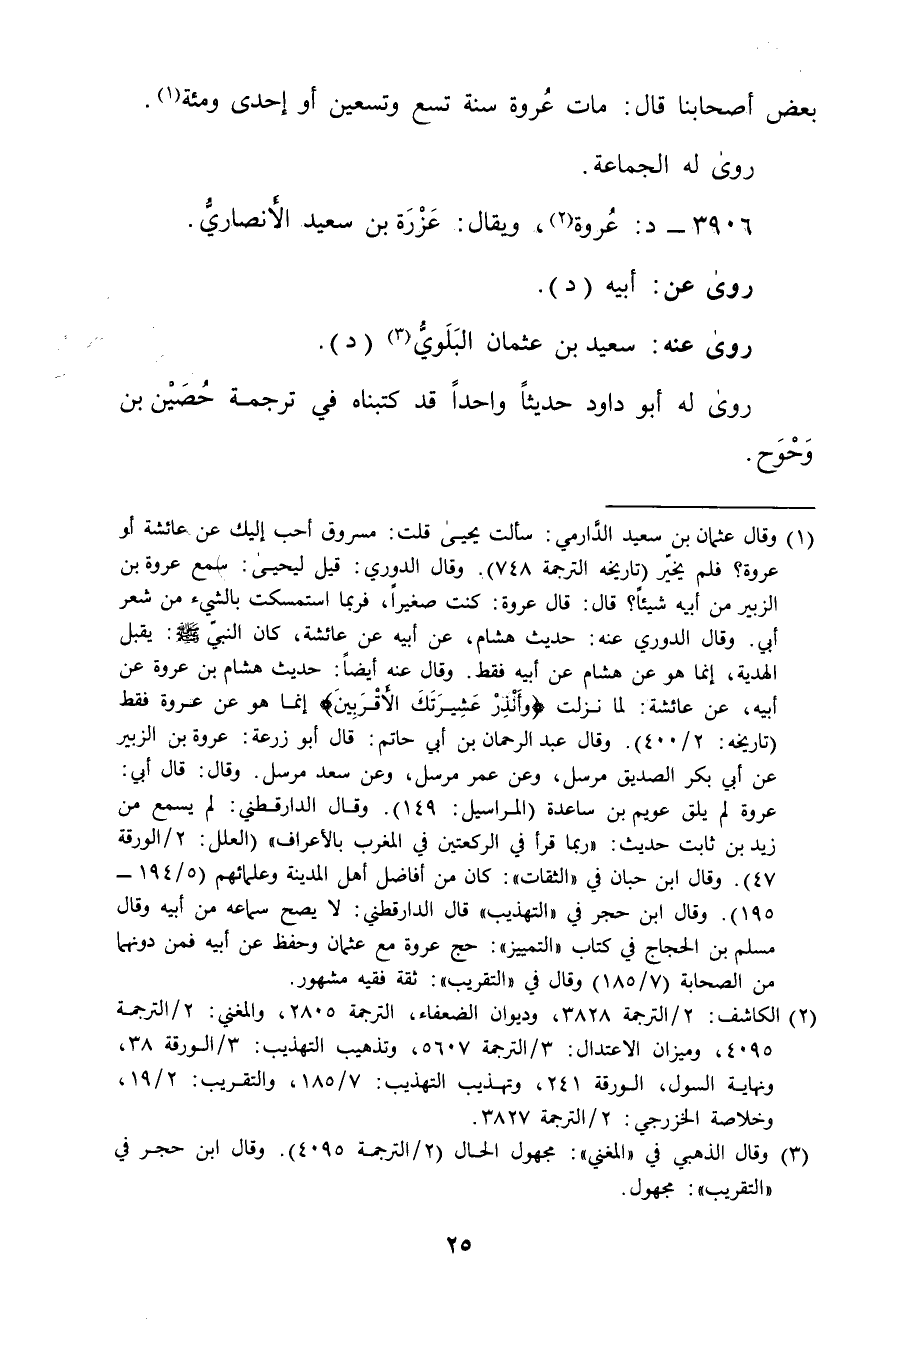 بعض أصحابنا قال: مات عُروة سنة تسع وتسعين أو إحدى ومئة(١).
روىٰ له الجماعة.
٣٩٠٦ ـ د: عُروة(٢)، ويقال: عَزْرَة بن سعيد الأَنصاريُّ.
روىٰ عن: أبيه (د).
روىٰ عنه: سعيد بن عثمان البَلَويُّ(٣) (د).
روىٰ له أبو داود حديثاً واحداً قد كتبناه في ترجمة حُصَيْن بن
وَحْوَح.
(١) وقال عثمان بن سعيد الدَّارمي: سألت يحيىٰ قلت: مسروق أحب إليك عن عائشة أو
عروة؟ فلم يخيّر (تاريخه الترجمة ٧٤٨). وقال الدوري: قيل ليحيىٰ: سمع عروة بن
الزبير من أبيه شيئاً؟ قال: قال عروة: كنت صغيراً، فربما استمسكت بالشيء من شعر
أبي. وقال الدوري عنه: حديث هشام، عن أبيه عن عائشة، كان النبيّ ﷺ: يقبل
الهدية، إنما هو عن هشام عن أبيه فقط. وقال عنه أيضاً: حديث هشام بن عروة عن
أبيه، عن عائشة: لما نزلت ﴿وأَنْذِرْ عَشِيرَتَكَ الأَقْرَبِينَ﴾ إنما هو عن عروة فقط
(تاريخه: ٢/٤٠٠). وقال عبد الرحمان بن أبي حاتم: قال أبو زرعة: عروة بن الزبير
عن أبي بكر الصديق مرسل، وعن عمر مرسل، وعن سعد مرسل. وقال: قال أبي:
عروة لم يلق عويم بن ساعدة (المراسيل: ١٤٩). وقال الدارقطني: لم يسمع من
زيد بن ثابت حديث: «ربما قرأ في الركعتين في المغرب بالأعراف» (العلل: ٢/الورقة
٤٧). وقال ابن حبان في «الثقات»: كان من أفاضل أهل المدينة وعلمائهم (٥/١٩٤ ـ
١٩٥). وقال ابن حجر في «التهذيب» قال الدارقطني: لا يصح سماعه من أبيه وقال
مسلم بن الحجاج في كتاب «التمييز»: حج عروة مع عثمان وحفظ عن أبيه فمن دونهما
من الصحابة (٧/١٨٥) وقال في «التقريب»: ثقة فقيه مشهور.
(٢) الكاشف: ٢/الترجمة ٣٨٢٨، وديوان الضعفاء، الترجمة ٢٨٠٥، والمغني: ٢/الترجمة
٤٠٩٥، وميزان الاعتدال: ٣/الترجمة ٥٦٠٧، وتذهيب التهذيب: ٣/الورقة ٣٨،
ونهاية السول، الورقة ٢٤١، وتهذيب التهذيب: ٧/١٨٥، والتقريب: ٢/١٩،
وخلاصة الخزرجي: ٢/الترجمة ٣٨٢٧.
(٣) وقال الذهبي في «المغني»: مجهول الحال (٢/الترجمة ٤٠٩٥). وقال ابن حجر في
«التقريب»: مجهول.
٢٥